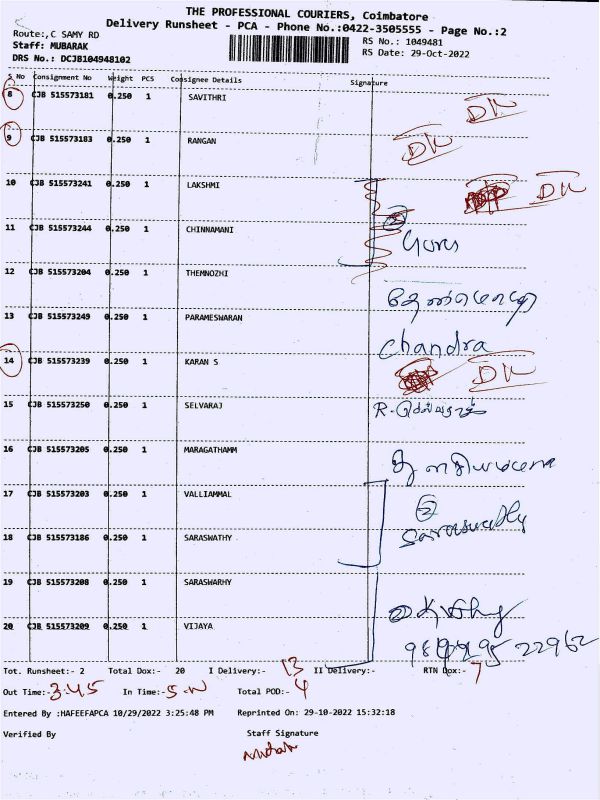 THE PROFESSIONAL COURIERS, Coimbatore
Delivery Runsheet - PCA - Phone No.:0422-3505555 - Page No.:2
Route:,C SAMY RD
RS No.: 1049481
Staff: MUBARAK
RS Date: 29-Oct-2022
DRS No.: DCJB104948102
S No Consignment No Weight PCS Consignee Details Signature
8 CJB 515573181 0.250 1 SAVITHRI DK
9 CJB 515573183 0.250 1 RANGAN DK
10 CJB 515573241 0.250 1 LAKSHMI DK
11 CJB 515573244 0.250 1 CHINNAMANI
12 CJB 515573204 0.250 1 THEMNOZHI
13 CJB 515573249 0.250 1 PARAMESWARAN Chandra
14 CJB 515573239 0.250 1 KARAN S DK
15 CJB 515573250 0.250 1 SELVARAJ
16 CJB 515573205 0.250 1 MARAGATHAMM
17 CJB 515573203 0.250 1 VALLIAMMAL
18 CJB 515573186 0.250 1 SARASWATHY
19 CJB 515573208 0.250 1 SARASWARHY
20 CJB 515573209 0.250 1 VIJAYA
Tot. Runsheet:- 2 Total Dox:- 20 I Delivery:- 13 II Delivery:- RTN Dox:- 7
Out Time:- 3.45 In Time:- Total POD:- 4
Entered By :HAFEEFAPCA 10/29/2022 3:25:48 PM Reprinted On: 29-10-2022 15:32:18
Verified By Staff Signature